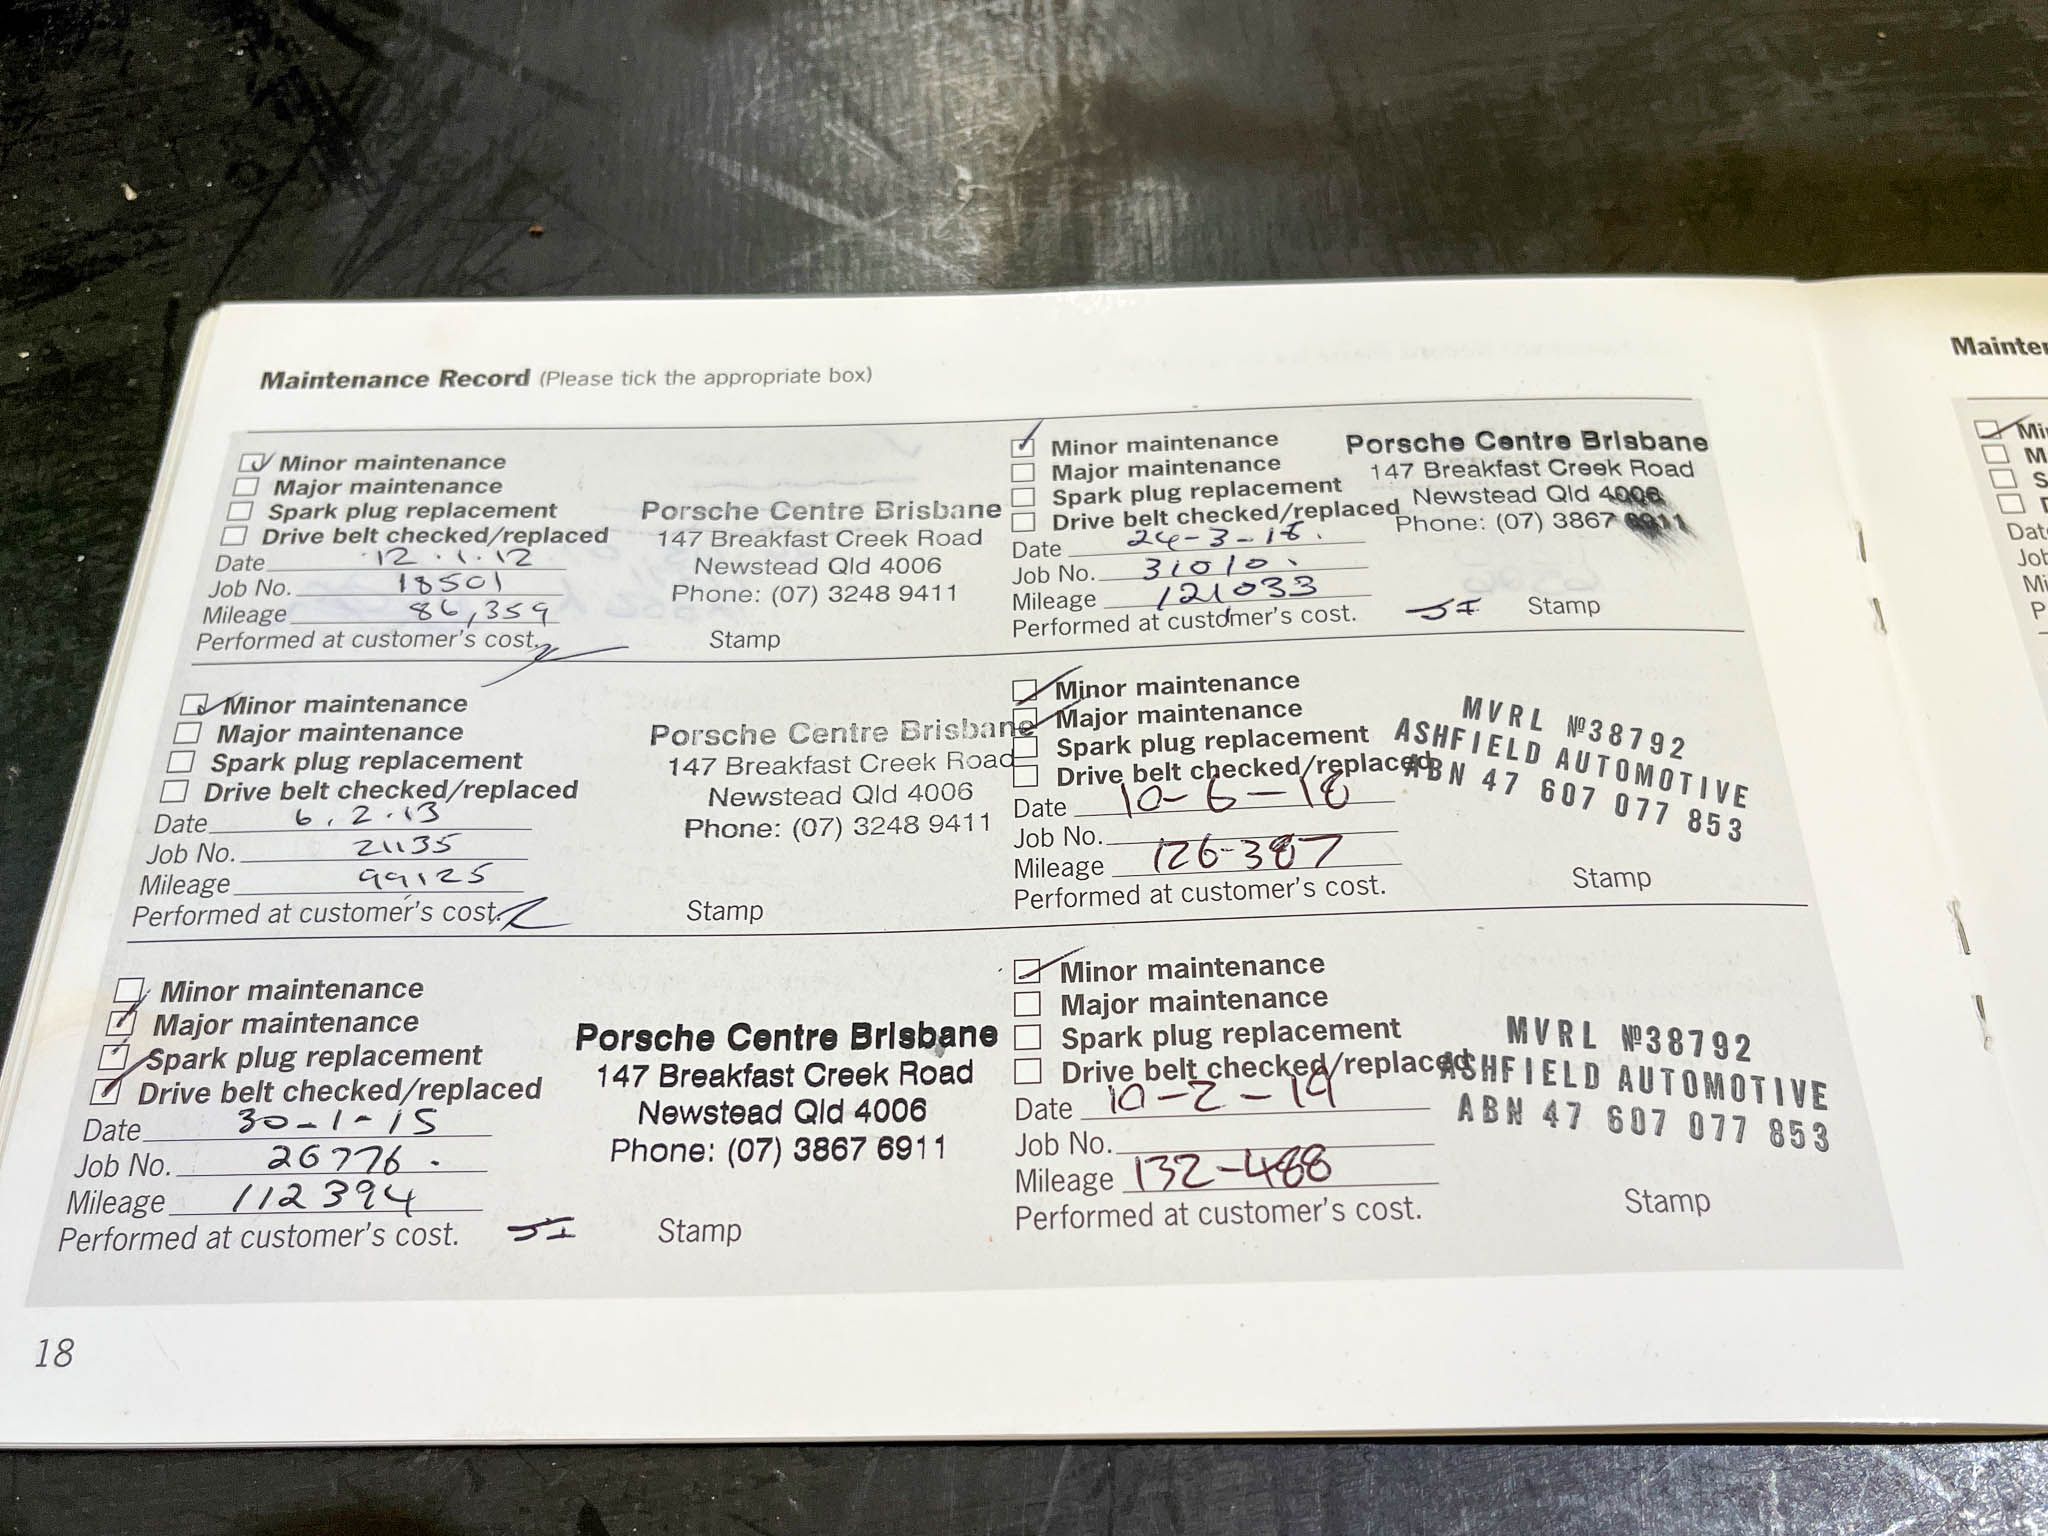 Maintenance Record (Please tick the appropriate box)
Minor maintenance
Major maintenance
Spark plug replacement
Drive belt checked/replaced
Date 12.1.12
Job No. 18501
Mileage 86,359
Performed at customer's cost.
Porsche Centre Brisbane
147 Breakfast Creek Road
Newstead Qld 4006
Phone: (07) 3248 9411
Stamp
Minor maintenance
Major maintenance
Spark plug replacement
Drive belt checked/replaced
Date 6.2.13
Job No. 21135
Mileage 99125
Performed at customer's cost.
Porsche Centre Brisbane
147 Breakfast Creek Road
Newstead Qld 4006
Phone: (07) 3248 9411
Stamp
Minor maintenance
Major maintenance
Spark plug replacement
Drive belt checked/replaced
Date 30-1-15
Job No. 26776.
Mileage 112394
Performed at customer's cost.
Porsche Centre Brisbane
147 Breakfast Creek Road
Newstead Qld 4006
Phone: (07) 3867 6911
Stamp
Minor maintenance
Major maintenance
Spark plug replacement
Drive belt checked/replaced
Date
Job No. 31010.
Mileage 121033
Performed at customer's cost.
Porsche Centre Brisbane
147 Breakfast Creek Road
Newstead Qld 4006
Phone: (07) 3867 6911
Stamp
Minor maintenance
Major maintenance
Spark plug replacement
Drive belt checked/replaced
Date 10-6-18
Job No.
Mileage 126-387
Performed at customer's cost.
MVRL №38792
ASHFIELD AUTOMOTIVE
ABN 47 607 077 853
Stamp
Minor maintenance
Major maintenance
Spark plug replacement
Drive belt checked/replaced
Date 10-2-19
Job No.
Mileage 132-488
Performed at customer's cost.
MVRL №38792
ASHFIELD AUTOMOTIVE
ABN 47 607 077 853
Stamp
18